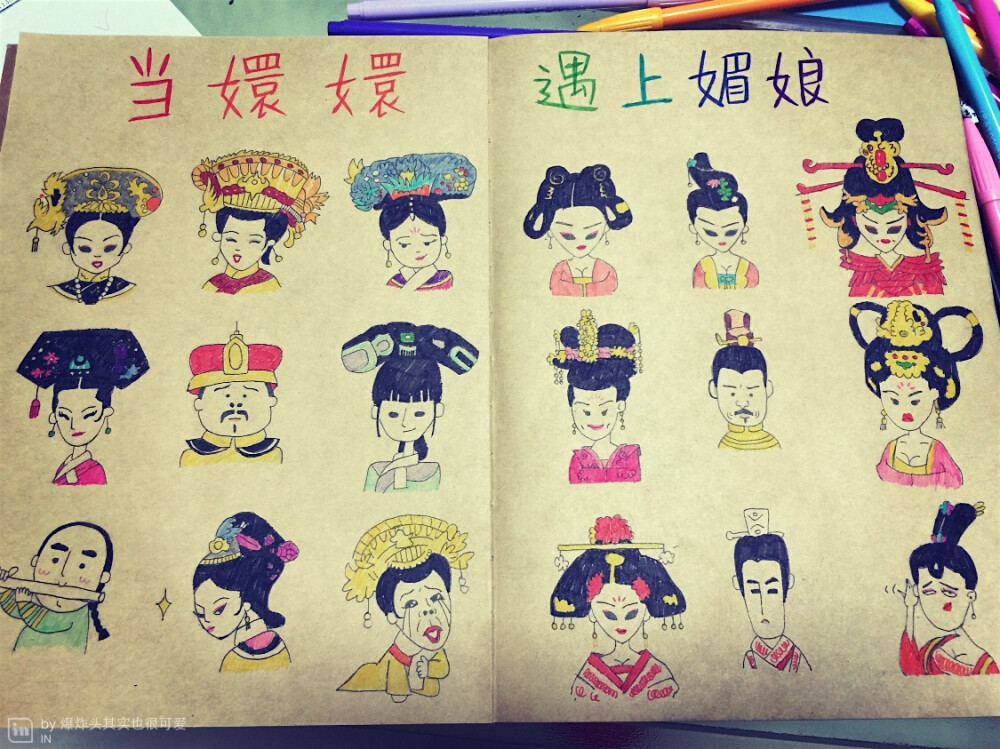 当嬛嬛 遇上媚娘
in by 爆炸头其实也很可爱
IN